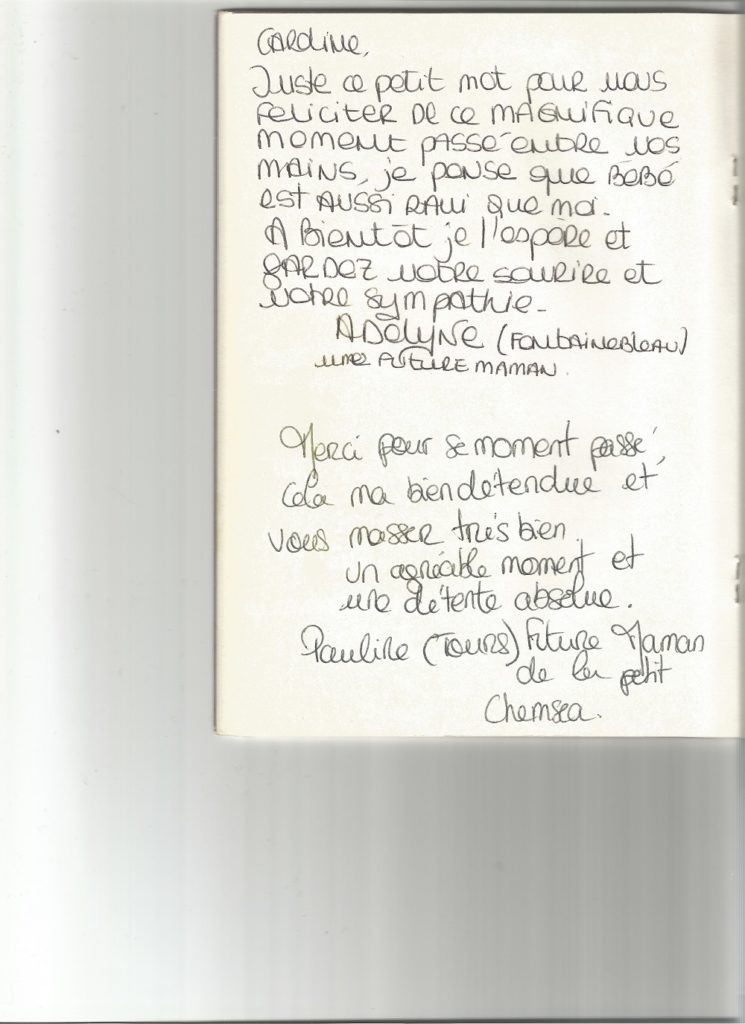 CAROLINE,
Juste ce petit mot pour vous
FELICITER DE CE MAGNIFIQUE
MOMENT PASSÉ ENTRE VOS
MAINS, je pense que BÉBÉ
EST AUSSI RAVI que moi.
A Bientôt je l'espère et
GARDEZ votre sourire et
votre sympathie.
ADELYNE (FONTAINEBLEAU)
une FUTURE MAMAN.
Merci pour se moment passé,
Cela ma bien détendue et
vous masser très bien.
un agréable moment et
une détente absolue.
Pauline (TOURS) Future Maman
de la petit
Chemsea.